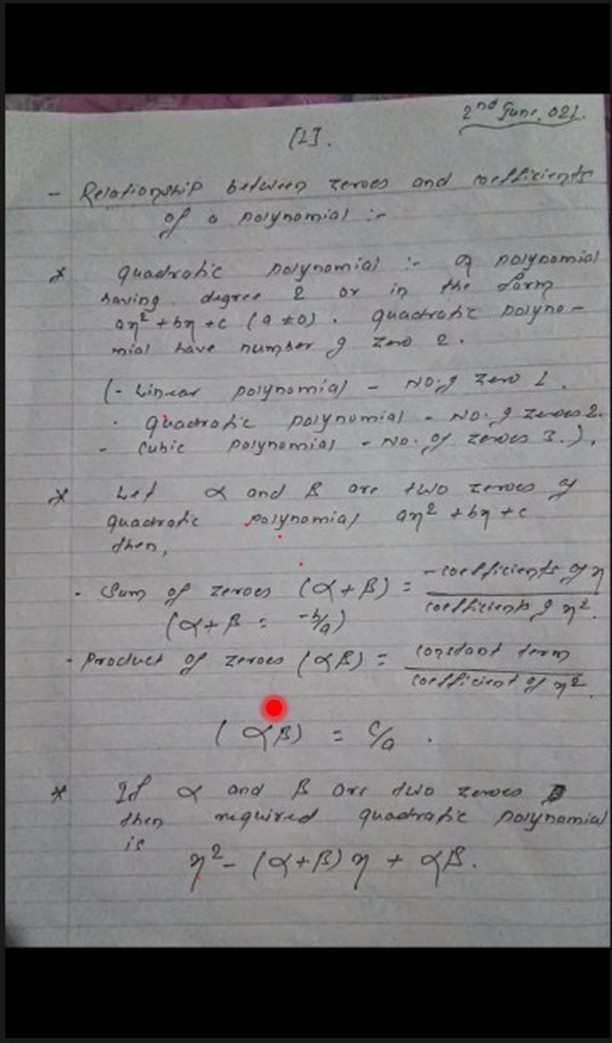 2nd June, 021.
[1].
- Relationship between zeroes and coefficients
of a polynomial :-
* Quadratic polynomial :- A polynomial
having degree 2 or in the form
ax² + bx + c (a ≠ 0). Quadratic polyno-
mial have number of zero 2.
(- Linear polynomial - No. of zero 1.
· Quadratic polynomial - No. of zeroes 2.
- Cubic polynomial - No. of zeroes 3.).
* Let α and β are two zeroes of
quadratic polynomial ax² + bx + c
then,
· Sum of zeroes (α + β) = -coefficients of x / coefficients of x².
(α + β = -b/a)
· Product of zeroes (αβ) = constant term / coefficient of x².
(αβ) = c/a .
* If α and β are two zeroes
then required quadratic polynomial
is
x² - (α+β) x + αβ.